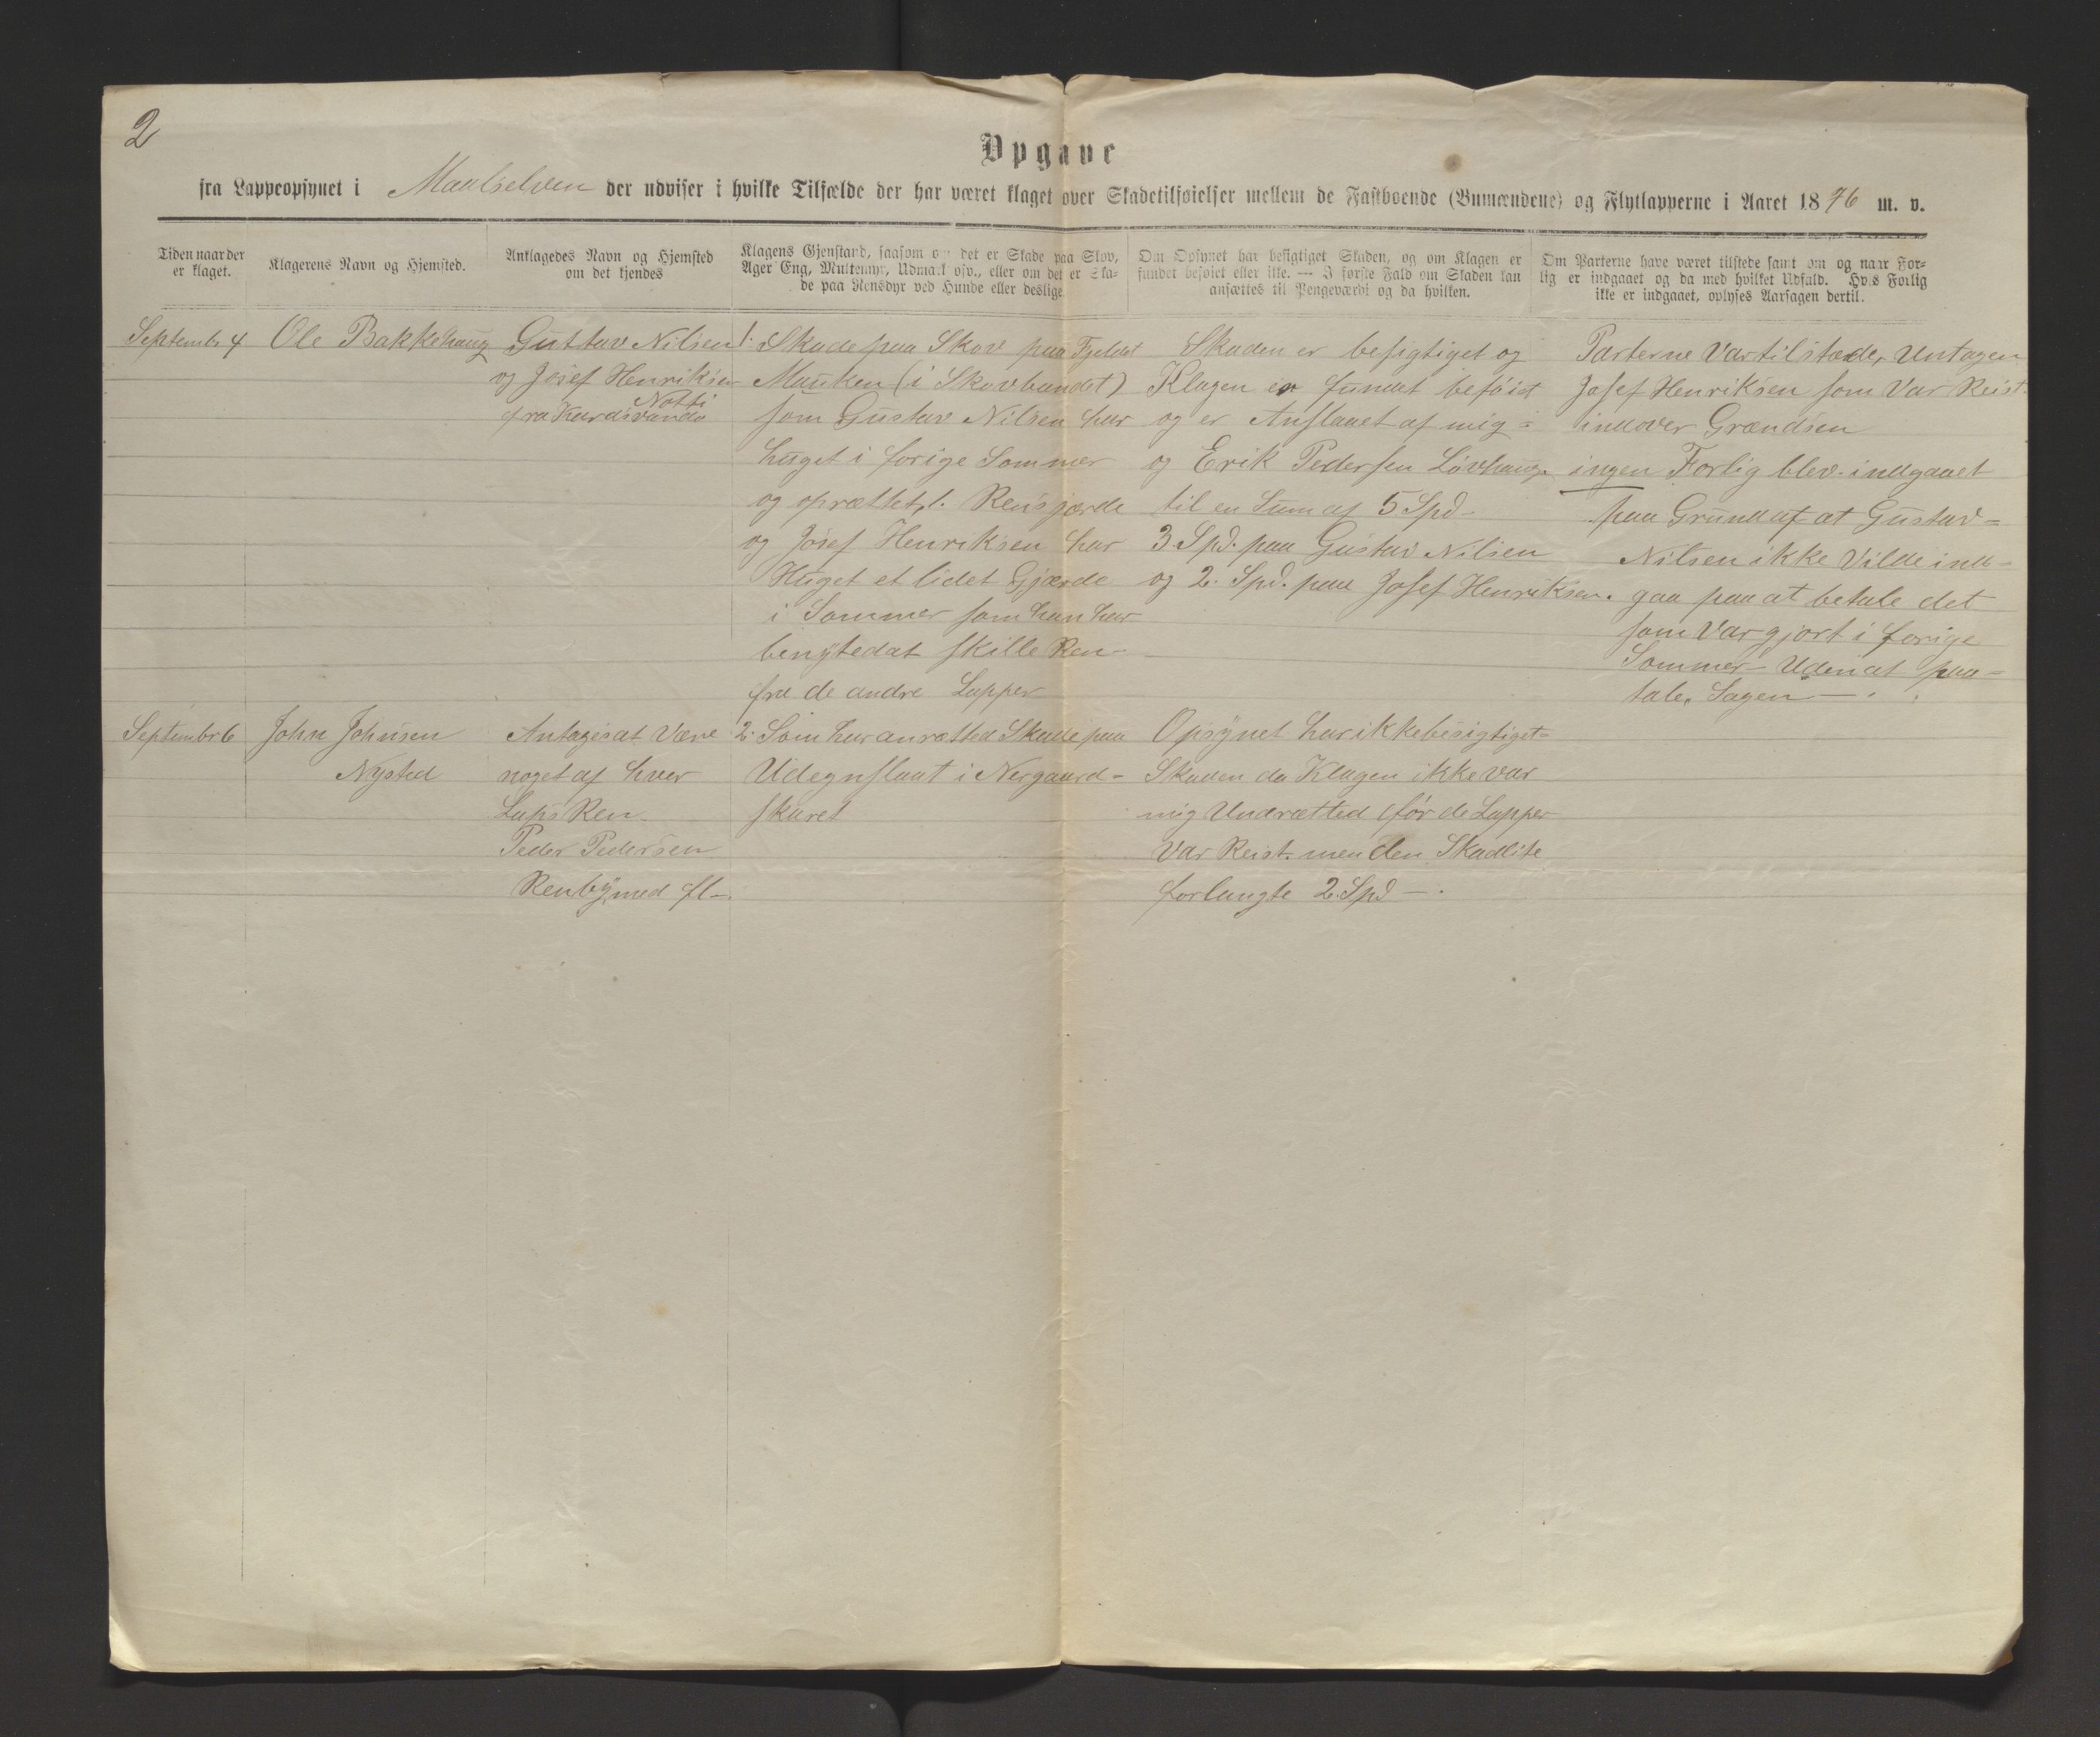 2
Opgave
fra Lappeopsynet i Maalselven der udviser i hvilke Tilfælde der har været klaget over Skadetilføielser mellem de Fastboende (Bumændene) og Flytlapperne i Aaret 1876 m. v.
Tiden naar der
er klaget.
Klagerens Navn og Hjemsted.
Anklagedes Navn og Hjemsted
om det kjendes
Klagens Gjenstand, saasom om det er Skade paa Skov,
Ager Eng, Multemyr, Udmark osv., eller om det er Ska-
de paa Rensdyr ved Hunde eller deslige.
Om Opsynet har besigtiget Skaden, og om Klagen er
fundet beføiet eller ikke. — I første Fald om Skaden kan
ansættes til Pengeværdi og da hvilken.
Om Parterne have været tilstede samt om og naar For-
lig er indgaaet og da med hvilket Udfald. Hvis Forlig
ikke er indgaaet, oplyses Aarsagen dertil.
Septembr 4
Ole Bakkehaug
Guttav Nilsen
og Josef Henriksen
Notti
fra
1. Skade paa Skov paa Fjeldet
Mauken (i Skovbandet)
som Gustav Nilsen har
huget i forige Sommer
og oprættet, 1. Rensgjærde
og Josef Henriksen har
Huget et lidet Gjærde
i Sommer som han har
benyted at skille Ren-
fra de andre Lapper
Skaden er besigtiget og
Klagen er fundet beføiet
og er Anslaaet af mig =
og Erik Pedersen Løvhaug
til en Sum af 5 Spd.
3 Spd. paa Gustav Nilsen
og 2. Spd. paa Josef Henriksen.
Parterne Var tilstæde, Untagen
Josef Henriksen som Var Reist
indover Grændsen
ingen Forlig blev indgaaet
paa Grund af at Gustav =
Nilsen ikke Vilde ind-
gaa paa at betale det
som Var gjort i forige
Sommer – Uden at paa-
tale, Sagen —.
Septembr 6
John Johnsen
Nysted
Antages at Være
noget af hver
Laps Ren.
Peder Pedersen
Renby med fl—.
2. Som har anrætted Skade paa
Udegnslaat i Nergaard-
skaret
Opsynet har ikke besigtiget=
Skaden da Klagen ikke var
mig Undrætted før de Lapper
Var Reist. men den Skadlite
forlangte 2. Spd —.